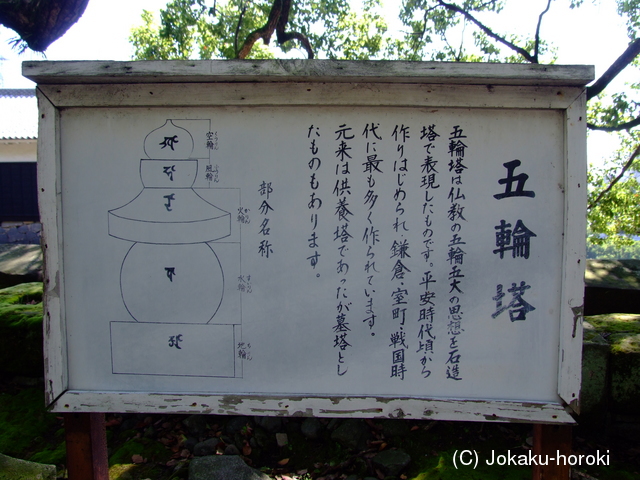 五輪塔
五輪塔は仏教の五輪五大の思想を石造
塔で表現したものです。平安時代頃から
作りはじめられ、鎌倉・室町・戦国時
代に最も多く作られています。
元来は供養塔であったが墓塔とし
たものもあります。
部分名称
空輪
くうりん
風輪
火輪
水輪
地輪
(C) Jokaku-horoki